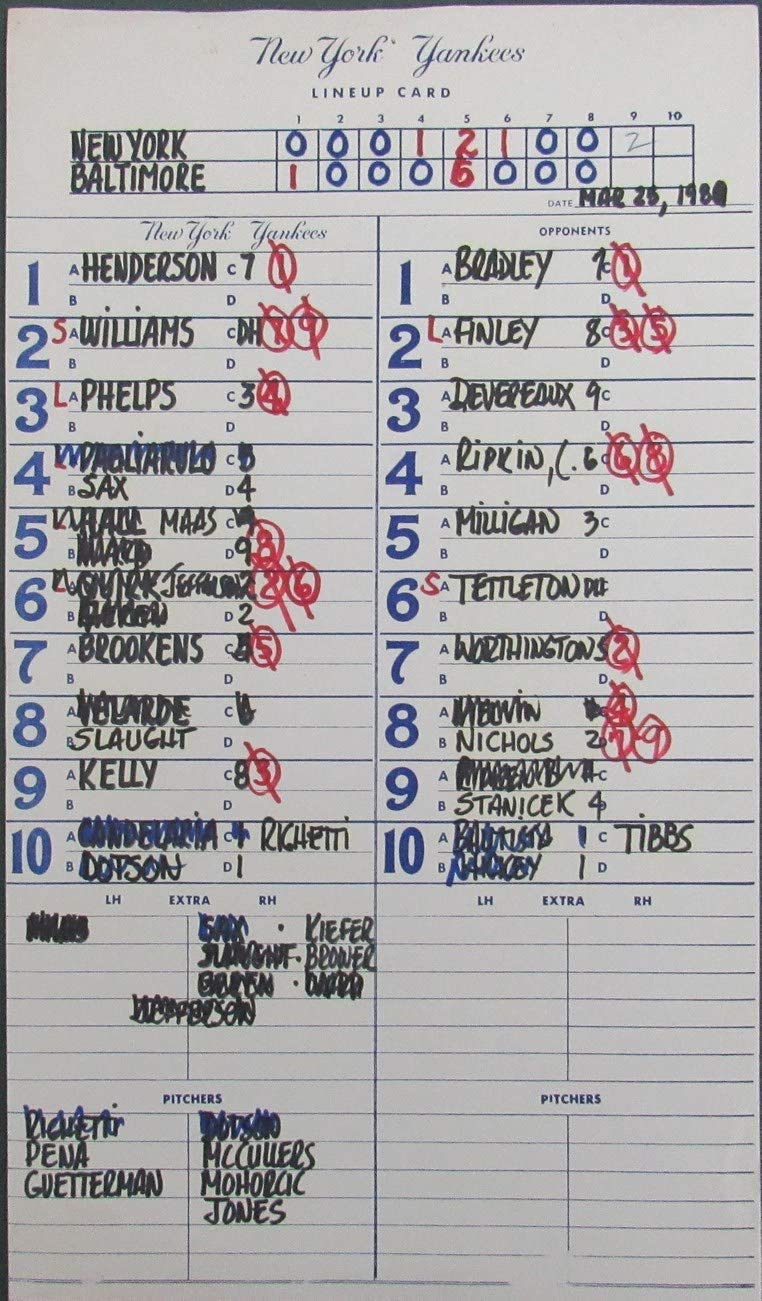 New York Yankees
LINEUP CARD
1 2 3 4 5 6 7 8 9 10
NEW YORK 0 0 0 1 2 1 0 0 2
BALTIMORE 1 0 0 0 0 0 0
DATE MAR 25, 1989
New York Yankees
OPPONENTS
1 A HENDERSON C 7 1
B D
2 S A WILLIAMS C DH 9
B D
3 L A PHELPS C 3 4
B D
4 L A PAGLIARULO C 5
B SAX D 4
5 L A HALL MAAS C
B WARD D 9 8
6 L A QUIRK JEFFERSON 2 6
B D 2
7 A BROOKENS C 5
B D
8 A VELARDE C
B SLAUGHT D
9 A KELLY C 8 3
B D
10 A CANDELARIA C 1 RIGHETTI
B DOTSON D 1
1 A BRADLEY 7 C 1
B D
2 L A FINLEY 8 C 3 5
B D
3 A DEVEREAUX 9 C
B D
4 A RIPKIN, C. 6 C 6 8
B D
5 A MILLIGAN 3 C
B D
6 S A TETTLETON DH
B D
7 A WORTHINGTON 5 2
B D
8 A MELVIN C 4
B NICHOLS 2 7 9
9 A C
B STANICEK 4
10 A BAUTISTA 1 C TIBBS
B 1 D
LH EXTRA RH
MAAS
SAX · KIEFER
SLAUGHT · BROWER
· WARD
JEFFERSON
LH EXTRA RH
PITCHERS
RIGHETTI DOTSON
PENA McCULLERS
GUETTERMAN MOHORCIC
JONES
PITCHERS